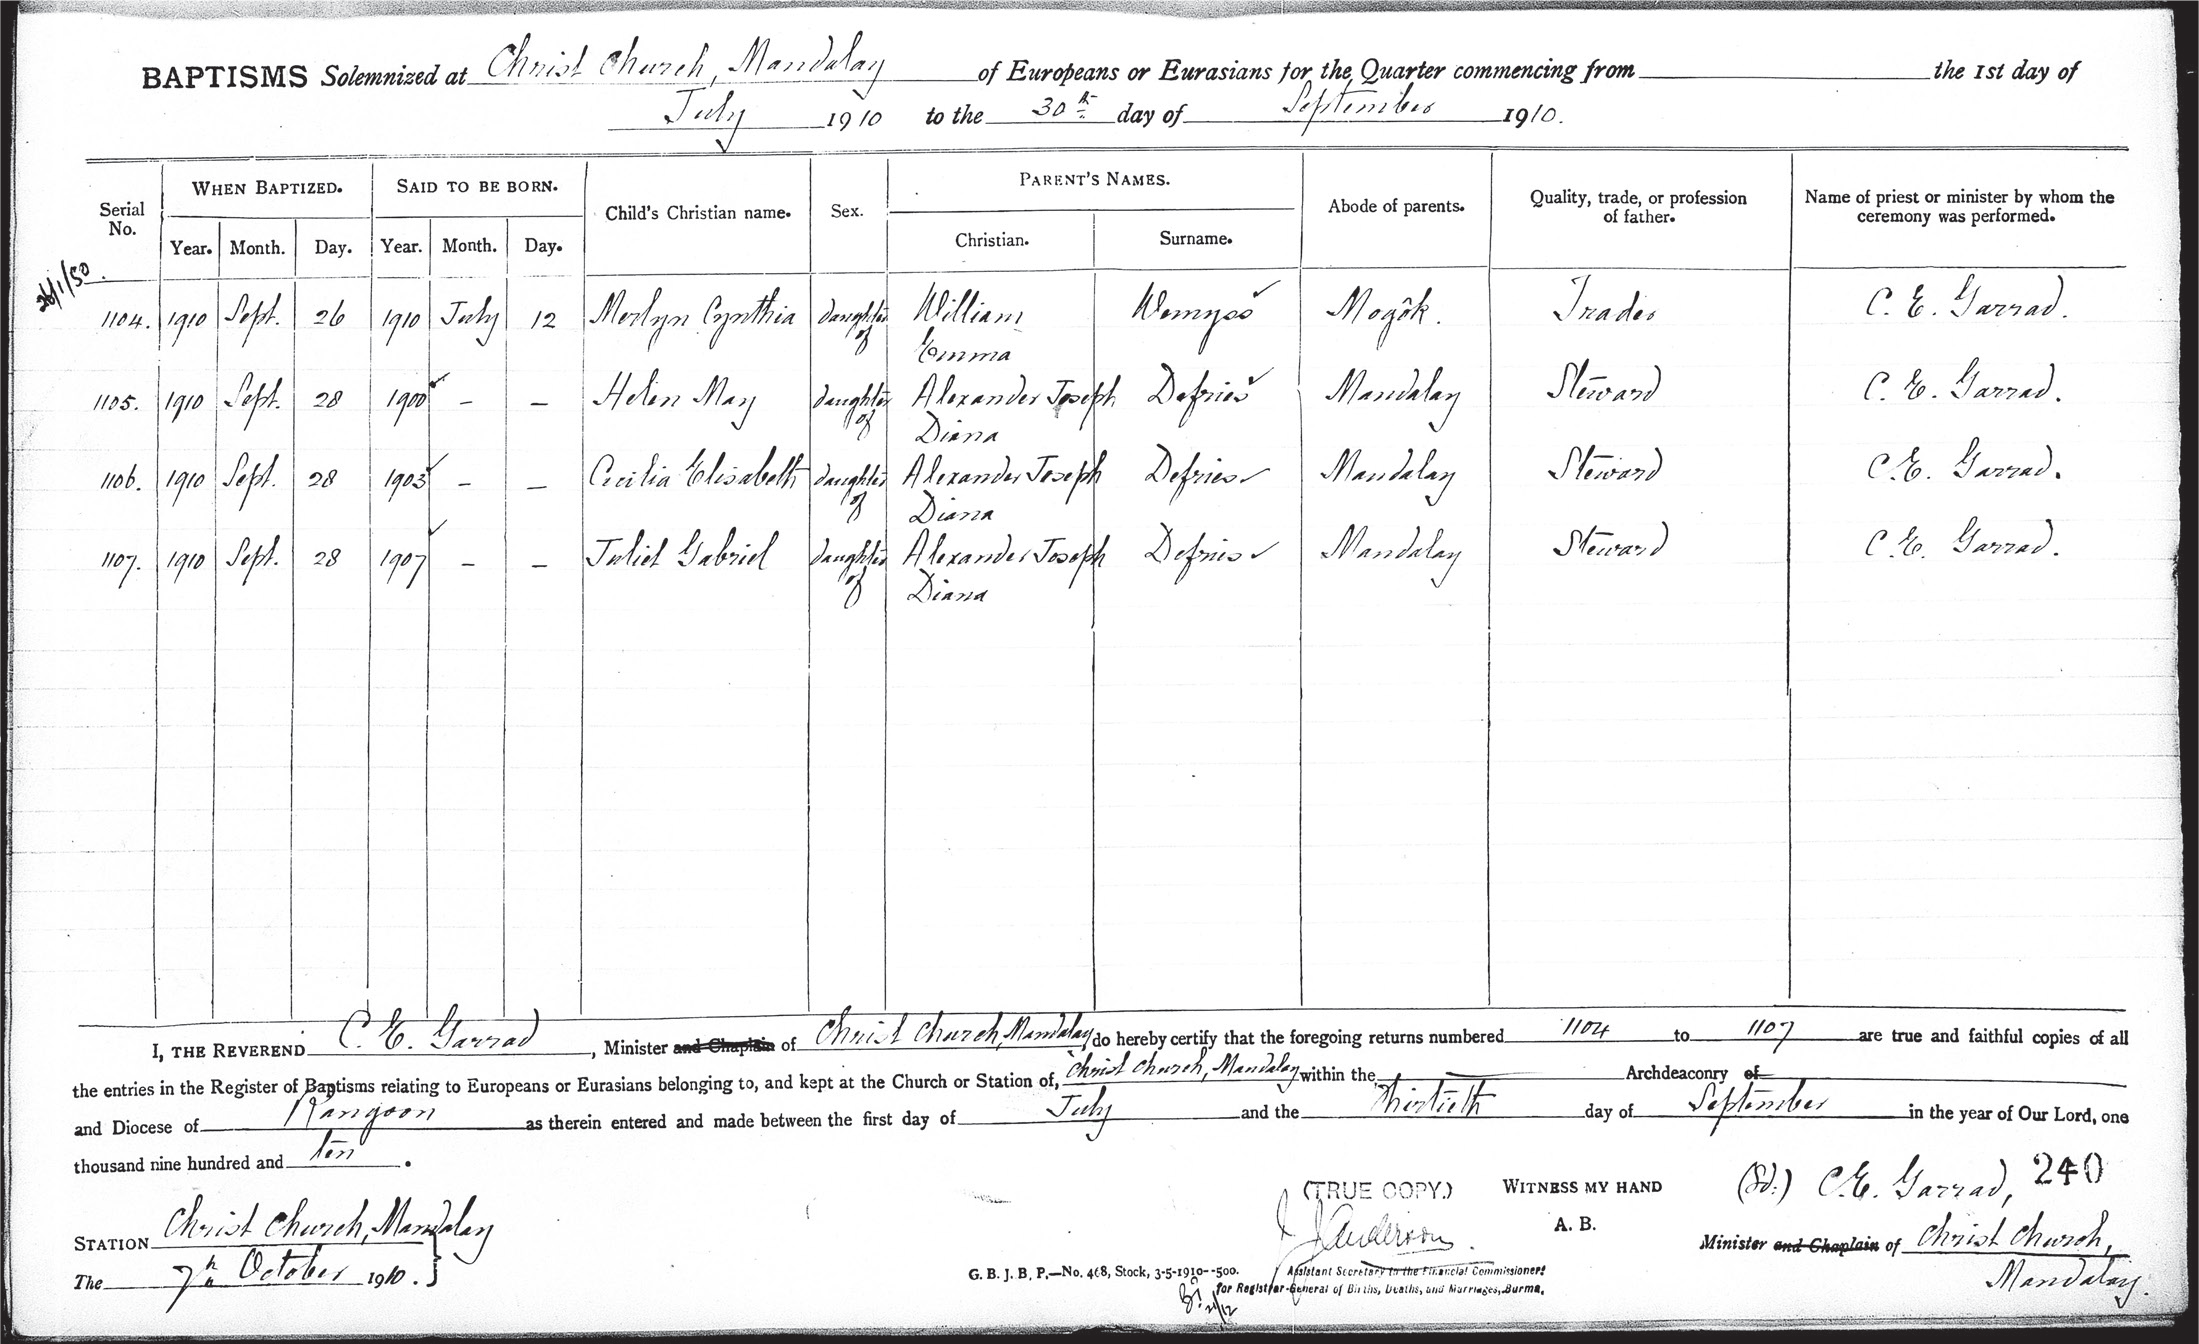 BAPTISMS Solemnized at Christ Church, Mandalay of Europeans or Eurasians for the Quarter commencing from the 1st day of
July 1910 to the 30th day of September 1910.
WHEN BAPTIZED. SAID TO BE BORN. PARENT'S NAMES.
Serial No. Year. Month. Day. Year. Month. Day. Child's Christian name. Sex. Christian. Surname. Abode of parents. Quality, trade, or profession of father. Name of priest or minister by whom the ceremony was performed.
26/1/50
1104. 1910 Sept. 26 1910 July 12 Merlyn Cynthia daughter of William Wemyss Mogôk. Trader C. E. Garrad.
Emma
1105. 1910 Sept. 28 1900 – – Helen May daughter of Alexander Joseph Defries Mandalay Steward C. E. Garrad.
Diana
1106. 1910 Sept. 28 1903 – – Cecilia Elisabeth daughter of Alexander Joseph Defries Mandalay Steward C. E. Garrad.
Diana
1107. 1910 Sept. 28 1907 – – Juliet Gabriel daughter of Alexander Joseph Defries Mandalay Steward C. E. Garrad.
Diana
I, THE REVEREND C. E. Garrad, Minister and Chaplain of Christ Church, Mandalay do hereby certify that the foregoing returns numbered 1104 to 1107 are true and faithful copies of all
the entries in the Register of Baptisms relating to Europeans or Eurasians belonging to, and kept at the Church or Station of, Christ Church, Mandalay within the Archdeaconry of
and Diocese of Rangoon as therein entered and made between the first day of July and the thirtieth day of September in the year of Our Lord, one
thousand nine hundred and ten.
(TRUE COPY.) WITNESS MY HAND (Sd:) C. E. Garrad, 240
J Anderson. A. B.
STATION Christ Church, Mandalay
Minister and Chaplain of Christ Church,
Mandalay.
The 7th October 1910.
G. B. J. B. P.—No. 468, Stock, 3-5-1910--500.
Assistant Secretary to the Financial Commissioner,
for Registrar-General of Births, Deaths, and Marriages, Burma.
21/12